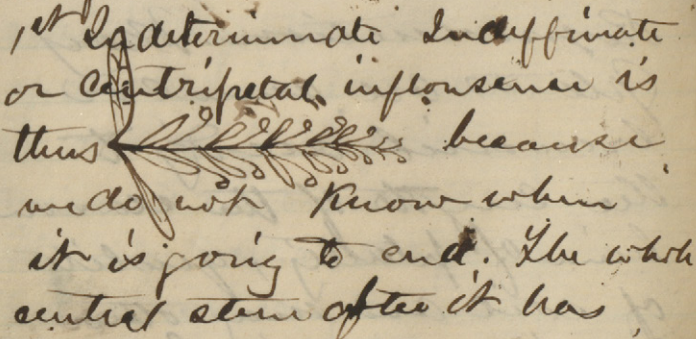 1st Indeterminate Indeffinate
or centripetal inflonsense is
thus because
we do not Know when
it is going to end. The whole
central stem after it has